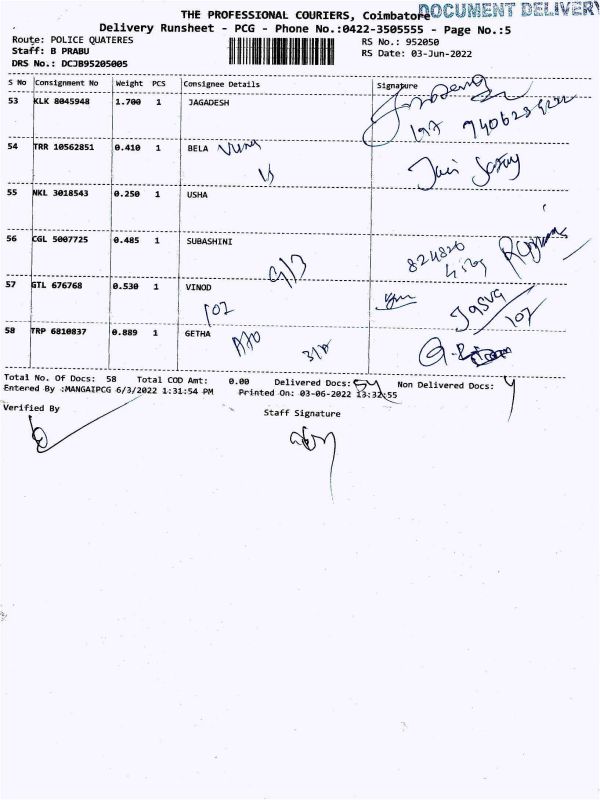 THE PROFESSIONAL COURIERS, Coimbatore DOCUMENT DELIVERY
Delivery Runsheet - PCG - Phone No.:0422-3505555 - Page No.:5
Route: POLICE QUATERES RS No.: 952050
Staff: B PRABU RS Date: 03-Jun-2022
DRS No.: DCJB95205005
S No Consignment No Weight PCS Consignee Details Signature
53 KLK 8045948 1.700 1 JAGADESH
54 TRR 10562851 0.410 1 BELA
55 NKL 3018543 0.250 1 USHA
56 CGL 5007725 0.485 1 SUBASHINI
57 GTL 676768 0.530 1 VINOD
107
107
58 TRP 6810837 0.889 1 GETHA
Total No. Of Docs: 58 Total COD Amt: 0.00 Delivered Docs: 54 Non Delivered Docs: 4
Entered By :MANGAIPCG 6/3/2022 1:31:54 PM Printed On: 03-06-2022 13:32:55
Verified By
Staff Signature